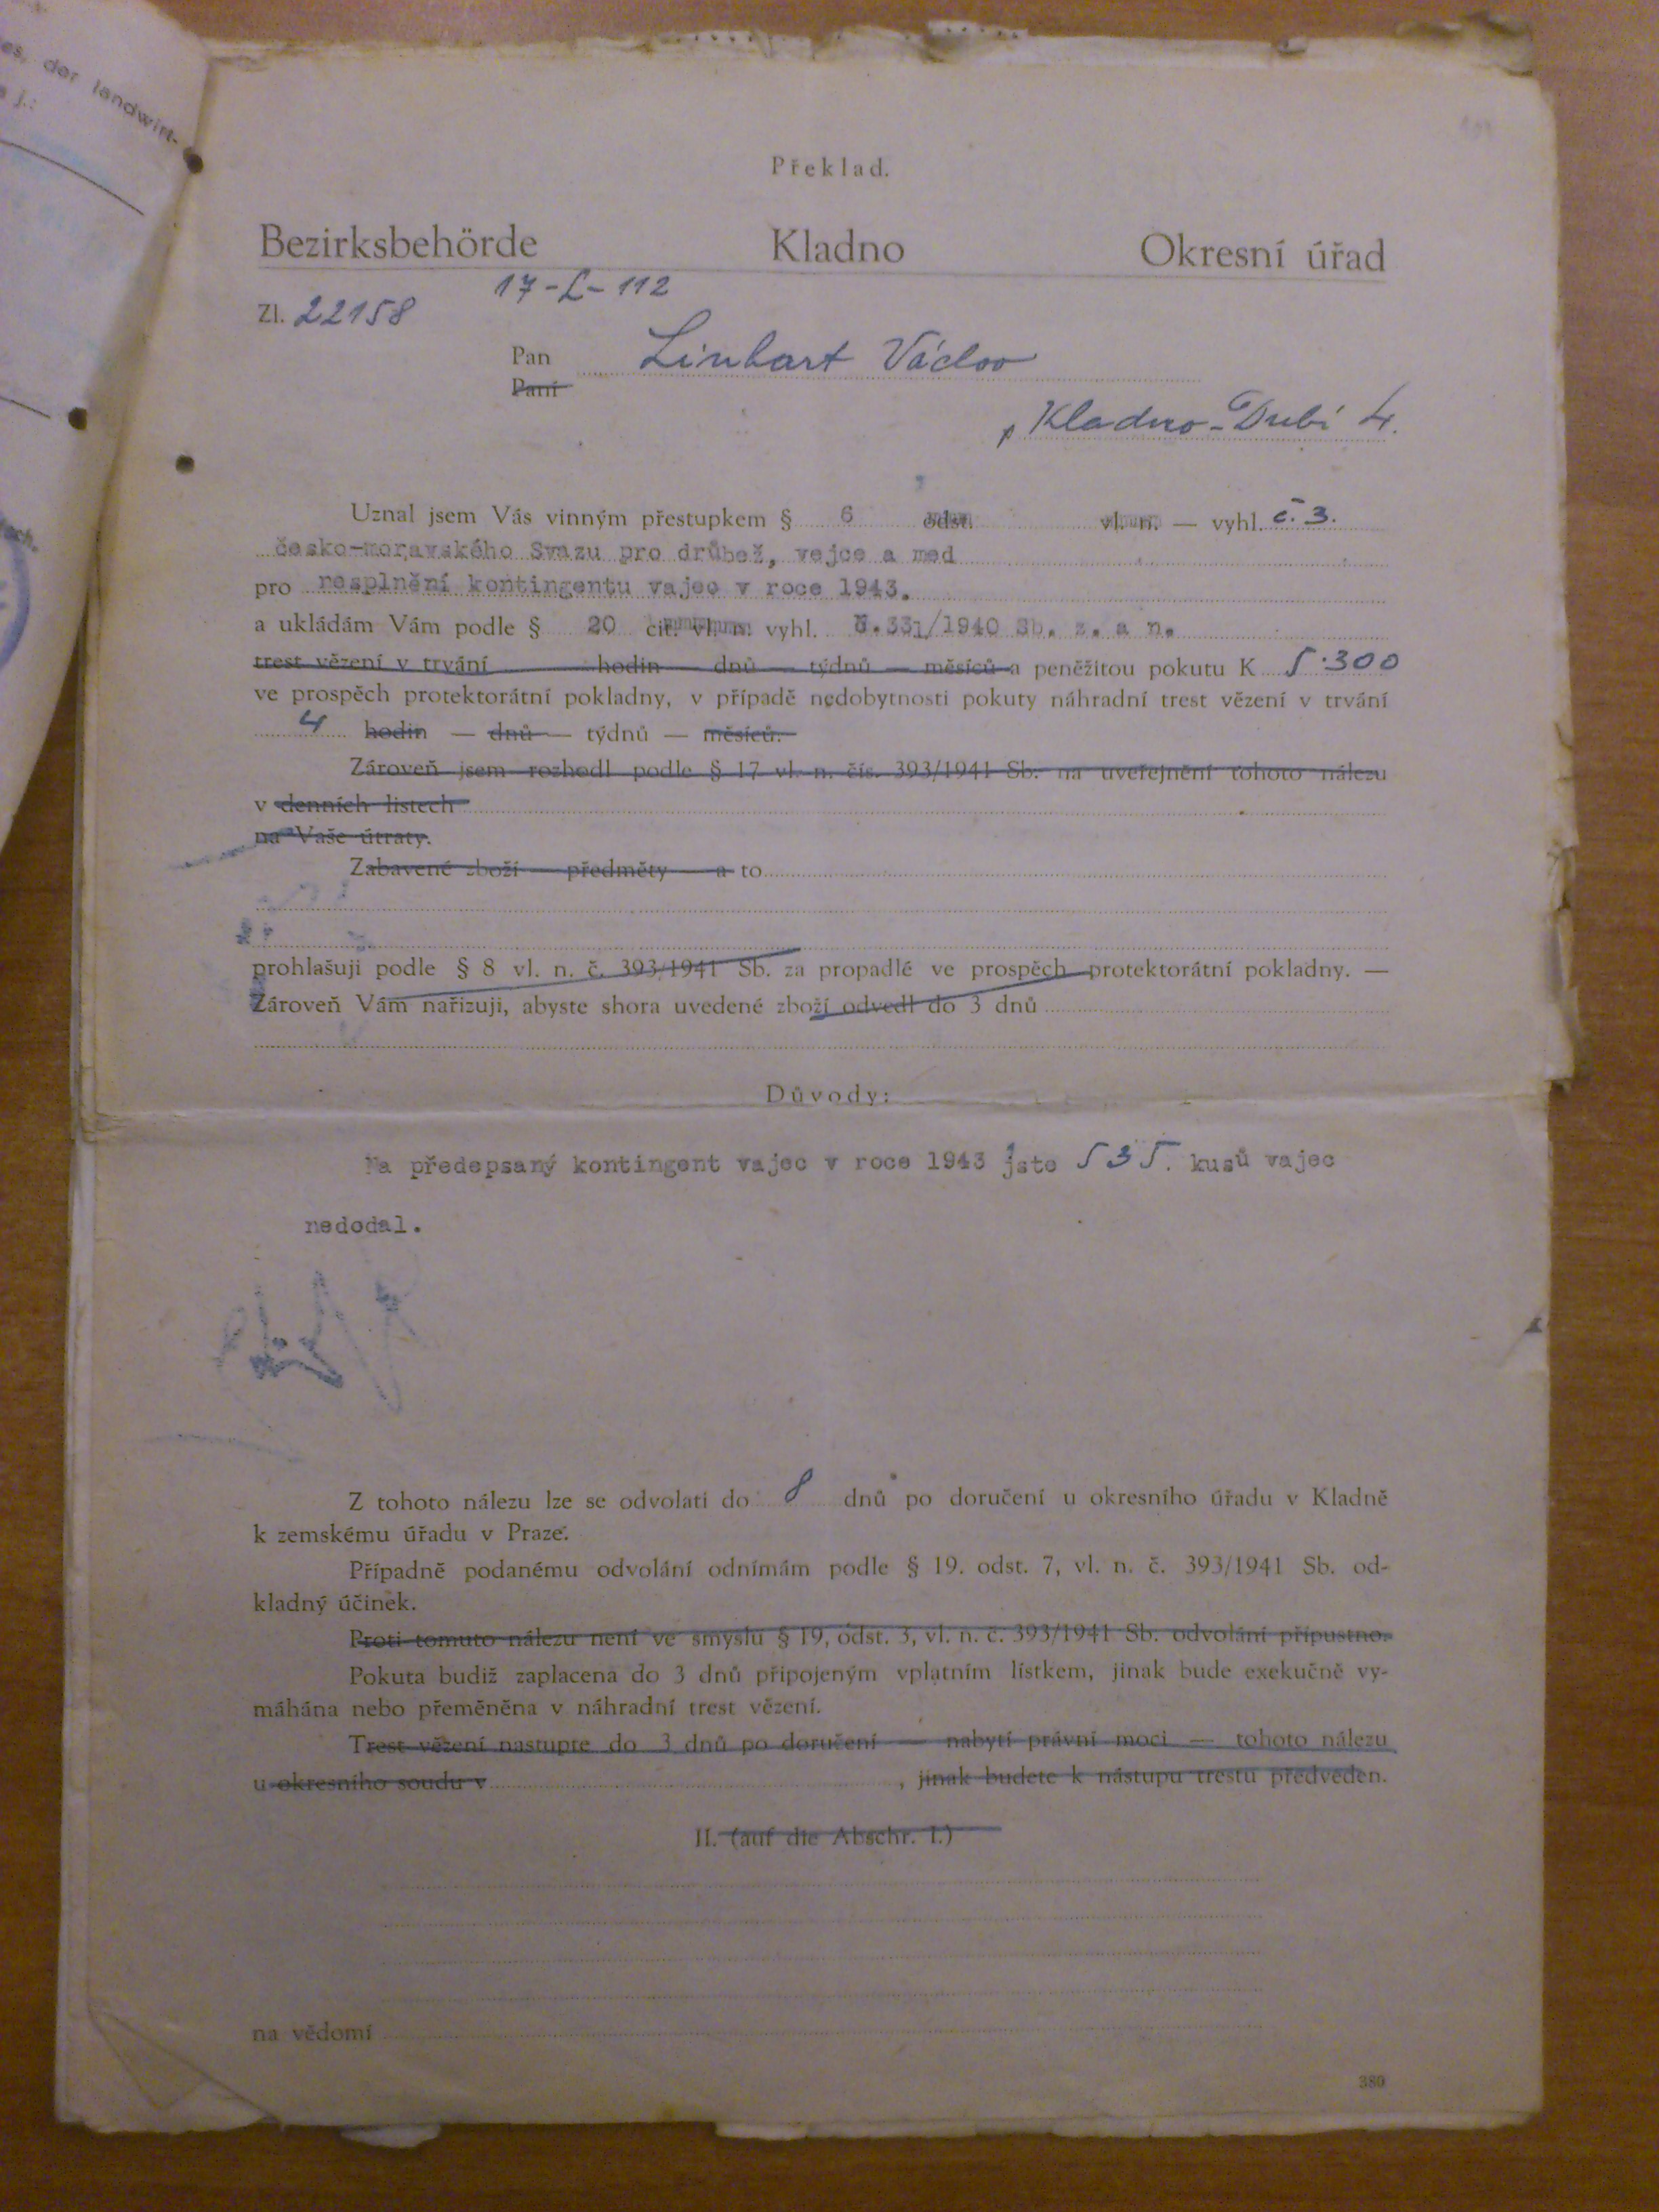 es, der landwirt-
j.:
Překlad.
Bezirksbehörde Kladno Okresní úřad
17-L-112
Zl. 22158
Pan Linhart Václav
Paní
Kladno-Dubí 4.
Uznal jsem Vás vinným přestupkem § 6 odst. vl. n. — vyhl. č. 3.
česko-moravského Svazu pro drůbež, vejce a med
pro nesplnění kontingentu vajec v roce 1943.
a ukládám Vám podle § 20 cit. vl. n. vyhl. č.331/1940 Sb. z. a n.
trest vězení v trvání hodin — dnů — týdnů — měsíců a peněžitou pokutu K 5.300
ve prospěch protektorátní pokladny, v případě nedobytnosti pokuty náhradní trest vězení v trvání
4 hodin — dnů — týdnů — měsíců.
Zároveň jsem rozhodl podle § 17 vl. n. čís. 393/1941 Sb. na uveřejnění tohoto nálezu
v denních listech
na Vaše útraty.
Zabavené zboží — předměty — a to
prohlašuji podle § 8 vl. n. č. 393/1941 Sb. za propadlé ve prospěch protektorátní pokladny. —
Zároveň Vám nařizuji, abyste shora uvedené zboží odvedl do 3 dnů
Důvody:
Na předepsaný kontingent vajec v roce 1943 jste 535. kusů vajec
nedodal.
Z tohoto nálezu lze se odvolati do 8 dnů po doručení u okresního úřadu v Kladně
k zemskému úřadu v Praze.
Případně podanému odvolání odnímám podle § 19. odst. 7, vl. n. č. 393/1941 Sb. od-
kladný účinek.
Proti tomuto nálezu není ve smyslu § 19, odst. 3, vl. n. č. 393/1941 Sb. odvolání přípustno.
Pokuta budiž zaplacena do 3 dnů připojeným vplatním lístkem, jinak bude exekučně vy-
máhána nebo přeměněna v náhradní trest vězení.
Trest vězení nastupte do 3 dnů po doručení — nabytí právní moci — tohoto nálezu
u okresního soudu v , jinak budete k nástupu trestu předveden.
II. (auf die Abschr. I.)
na vědomí
380